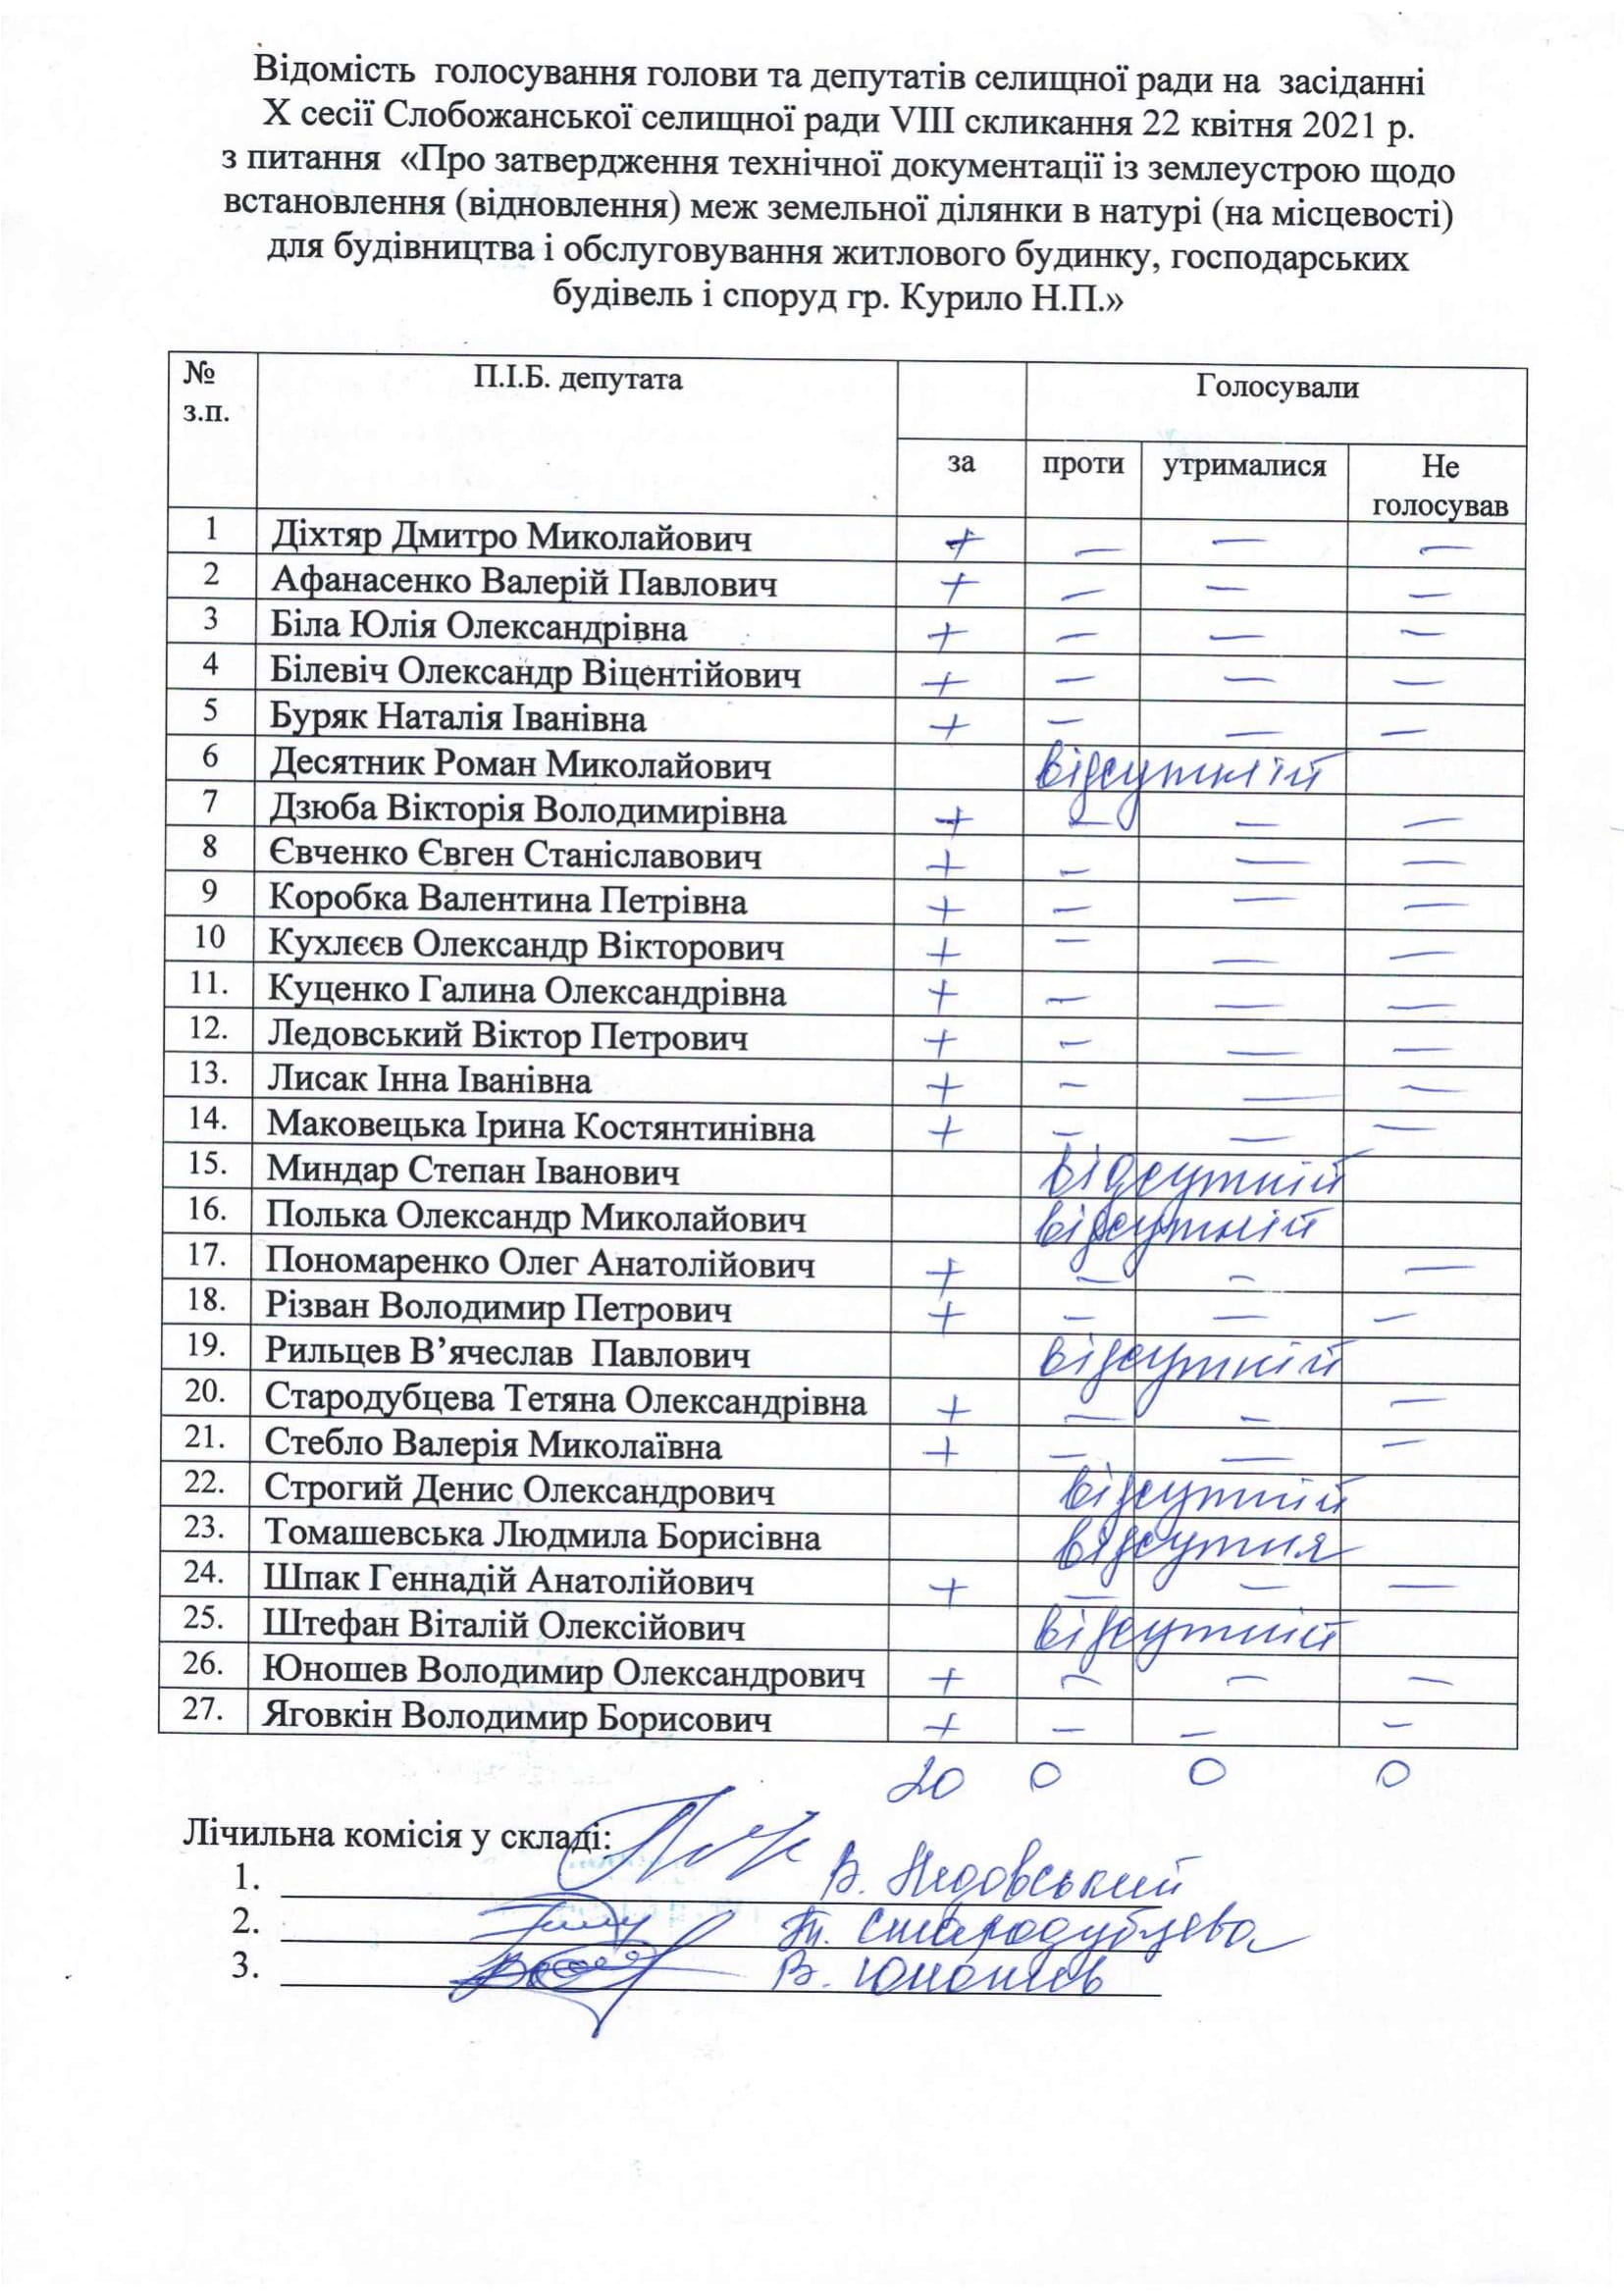 Відомість голосування голови та депутатів селищної ради на засіданні
Х сесії Слобожанської селищної ради VIII скликання 22 квітня 2021 р.
з питання «Про затвердження технічної документації із землеустрою щодо
встановлення (відновлення) меж земельної ділянки в натурі (на місцевості)
для будівництва і обслуговування житлового будинку, господарських
будівель і споруд гр. Курило Н.П.»
№ з.п. П.І.Б. депутата Голосували
за проти утрималися Не голосував
1 Діхтяр Дмитро Миколайович + — — —
2 Афанасенко Валерій Павлович + — — —
3 Біла Юлія Олександрівна + — — —
4 Білевіч Олександр Віцентійович + — — —
5 Буряк Наталія Іванівна + — — —
6 Десятник Роман Миколайович відсутній
7 Дзюба Вікторія Володимирівна + — — —
8 Євченко Євген Станіславович + — — —
9 Коробка Валентина Петрівна + — — —
10 Кухлєєв Олександр Вікторович + — — —
11. Куценко Галина Олександрівна + — — —
12. Ледовський Віктор Петрович + — — —
13. Лисак Інна Іванівна + — — —
14. Маковецька Ірина Костянтинівна + — — —
15. Миндар Степан Іванович відсутній
16. Полька Олександр Миколайович відсутній
17. Пономаренко Олег Анатолійович + — — —
18. Різван Володимир Петрович + — — —
19. Рильцев В’ячеслав Павлович відсутній
20. Стародубцева Тетяна Олександрівна + — — —
21. Стебло Валерія Миколаївна + — — —
22. Строгий Денис Олександрович відсутній
23. Томашевська Людмила Борисівна відсутня
24. Шпак Геннадій Анатолійович + — — —
25. Штефан Віталій Олексійович відсутній
26. Юношев Володимир Олександрович + — — —
27. Яговкін Володимир Борисович + — — —
20 0 0 0
Лічильна комісія у складі:
1. В. Лєдовський
2. Т. Стародубцева
3. В. Юношев